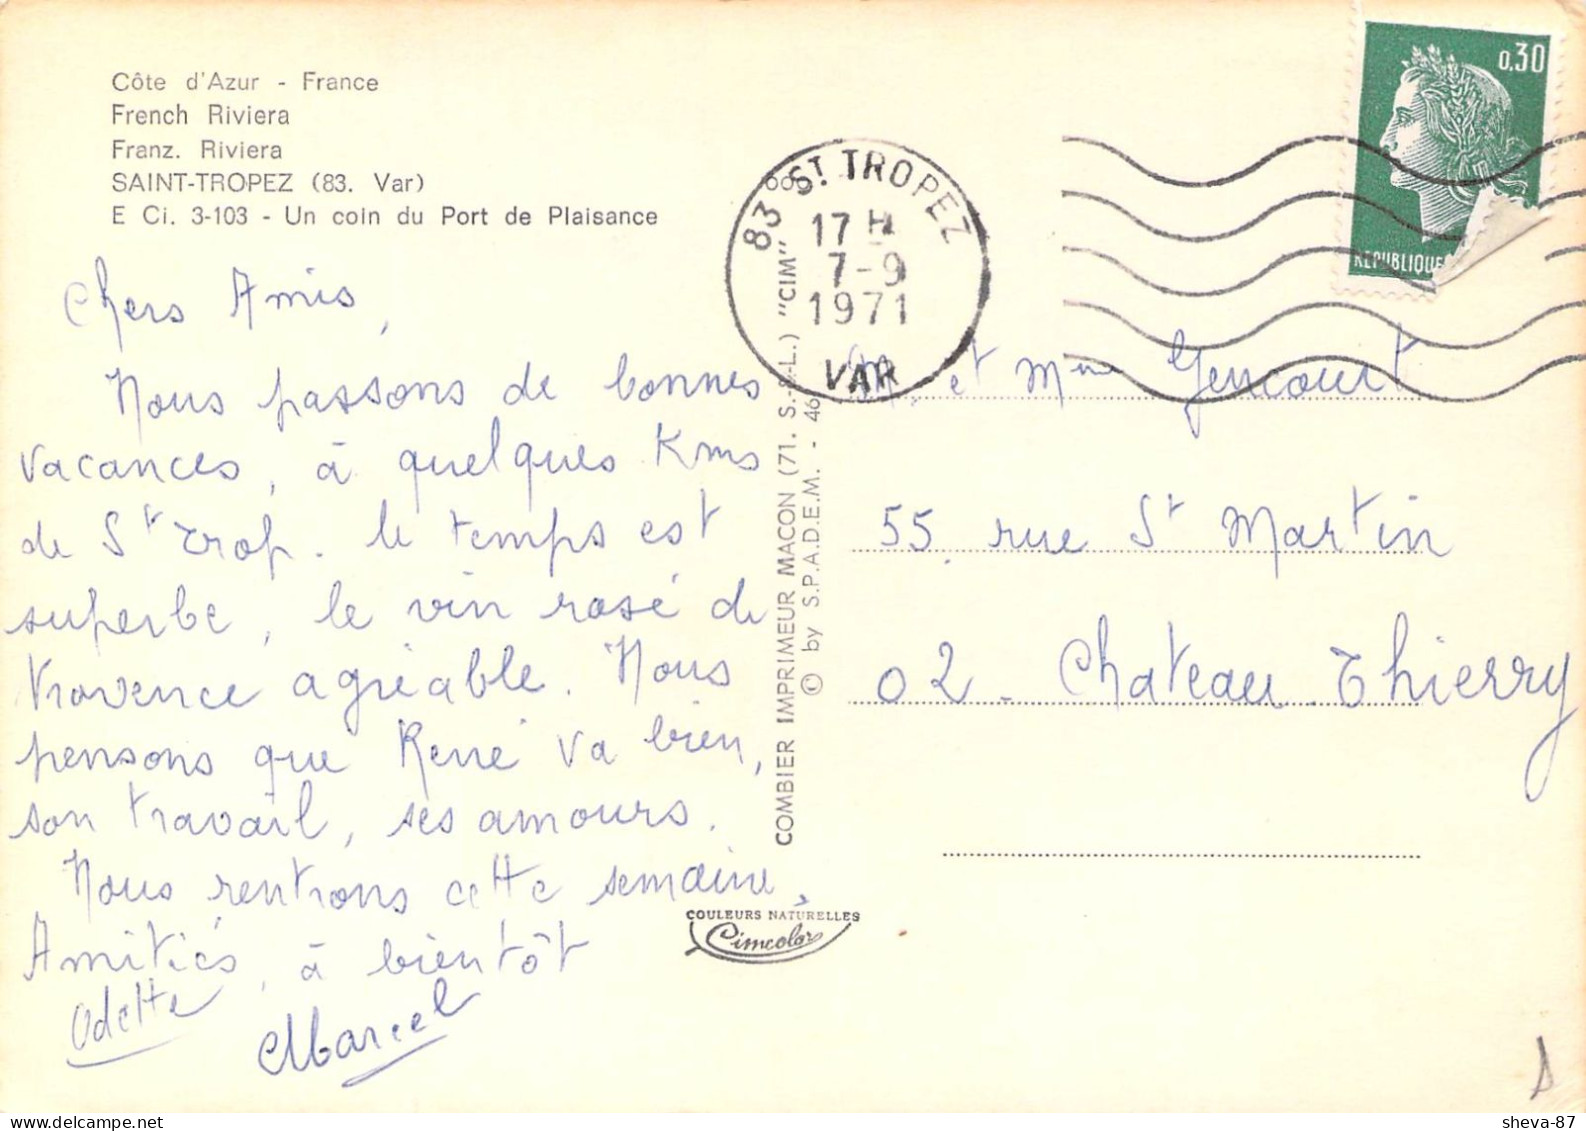 Côte d'Azur - France
French Riviera
Franz. Riviera
SAINT-TROPEZ (83. Var)
E Ci. 3-103 - Un coin du Port de Plaisance
Chers Amis,
Nous passons de bonnes
vacances, à quelques Kms
de St Trop. le temps est
superbe, le vin rosé de
Provence agréable. Nous
pensons que René va bien,
son travail, ses amours.
Nous rentrons cette semaine,
Amitiés, à bientôt
Odette
Marcel
COMBIER IMPRIMEUR MACON (71. S.-&-L.) "CIM"
© by S.P.A.D.E.M. - 46
COULEURS NATURELLES
Cimcolor
83 ST TROPEZ
17 H
7-9
1971
VAR
0,30
REPUBLIQUE
M. et Mme Gencourt
55. rue St Martin
02 - Chateau Thierry
sheva-87